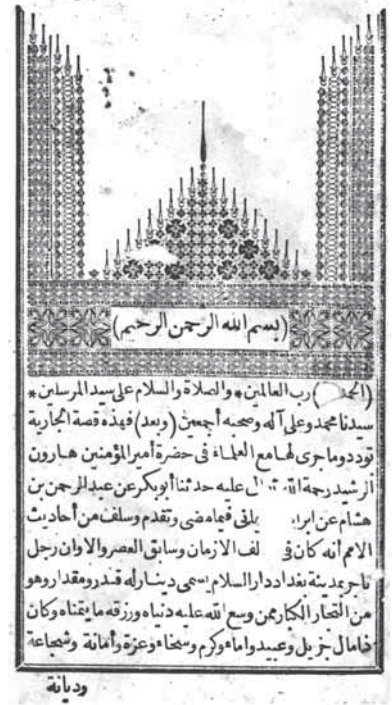 (بسم الله الرحمن الرحيم)
(الحمد) رب العالمين * والصلاة والسلام على سيد المرسلين *
سيدنا محمد وعلى آله وصحبه أجمعين (وبعد) فهذه قصة الجارية
تودد وما جرى لها مع العلماء فى حضرة أمير المؤمنين هارون
الرشيد رحمة الله عليه حدثنا أبو بكر عن عبد الرحمن بن
هشام عن فيما مضى وتقدم وسلف من أحاديث
الامم أنه كان لف الازمان وسابق العصر والاوان رجل
تاجر بمدينة بغداد دار السلام يسمى دينار له قدر ومقدار وهو
من التجار الكبار ممن وسع الله عليه دنياه ورزقه ما يتمناه وكان
ذا مال جزيل وعبيد واماء وكرم وسخاء وعزة وأمانة وشجاعة
وديانة